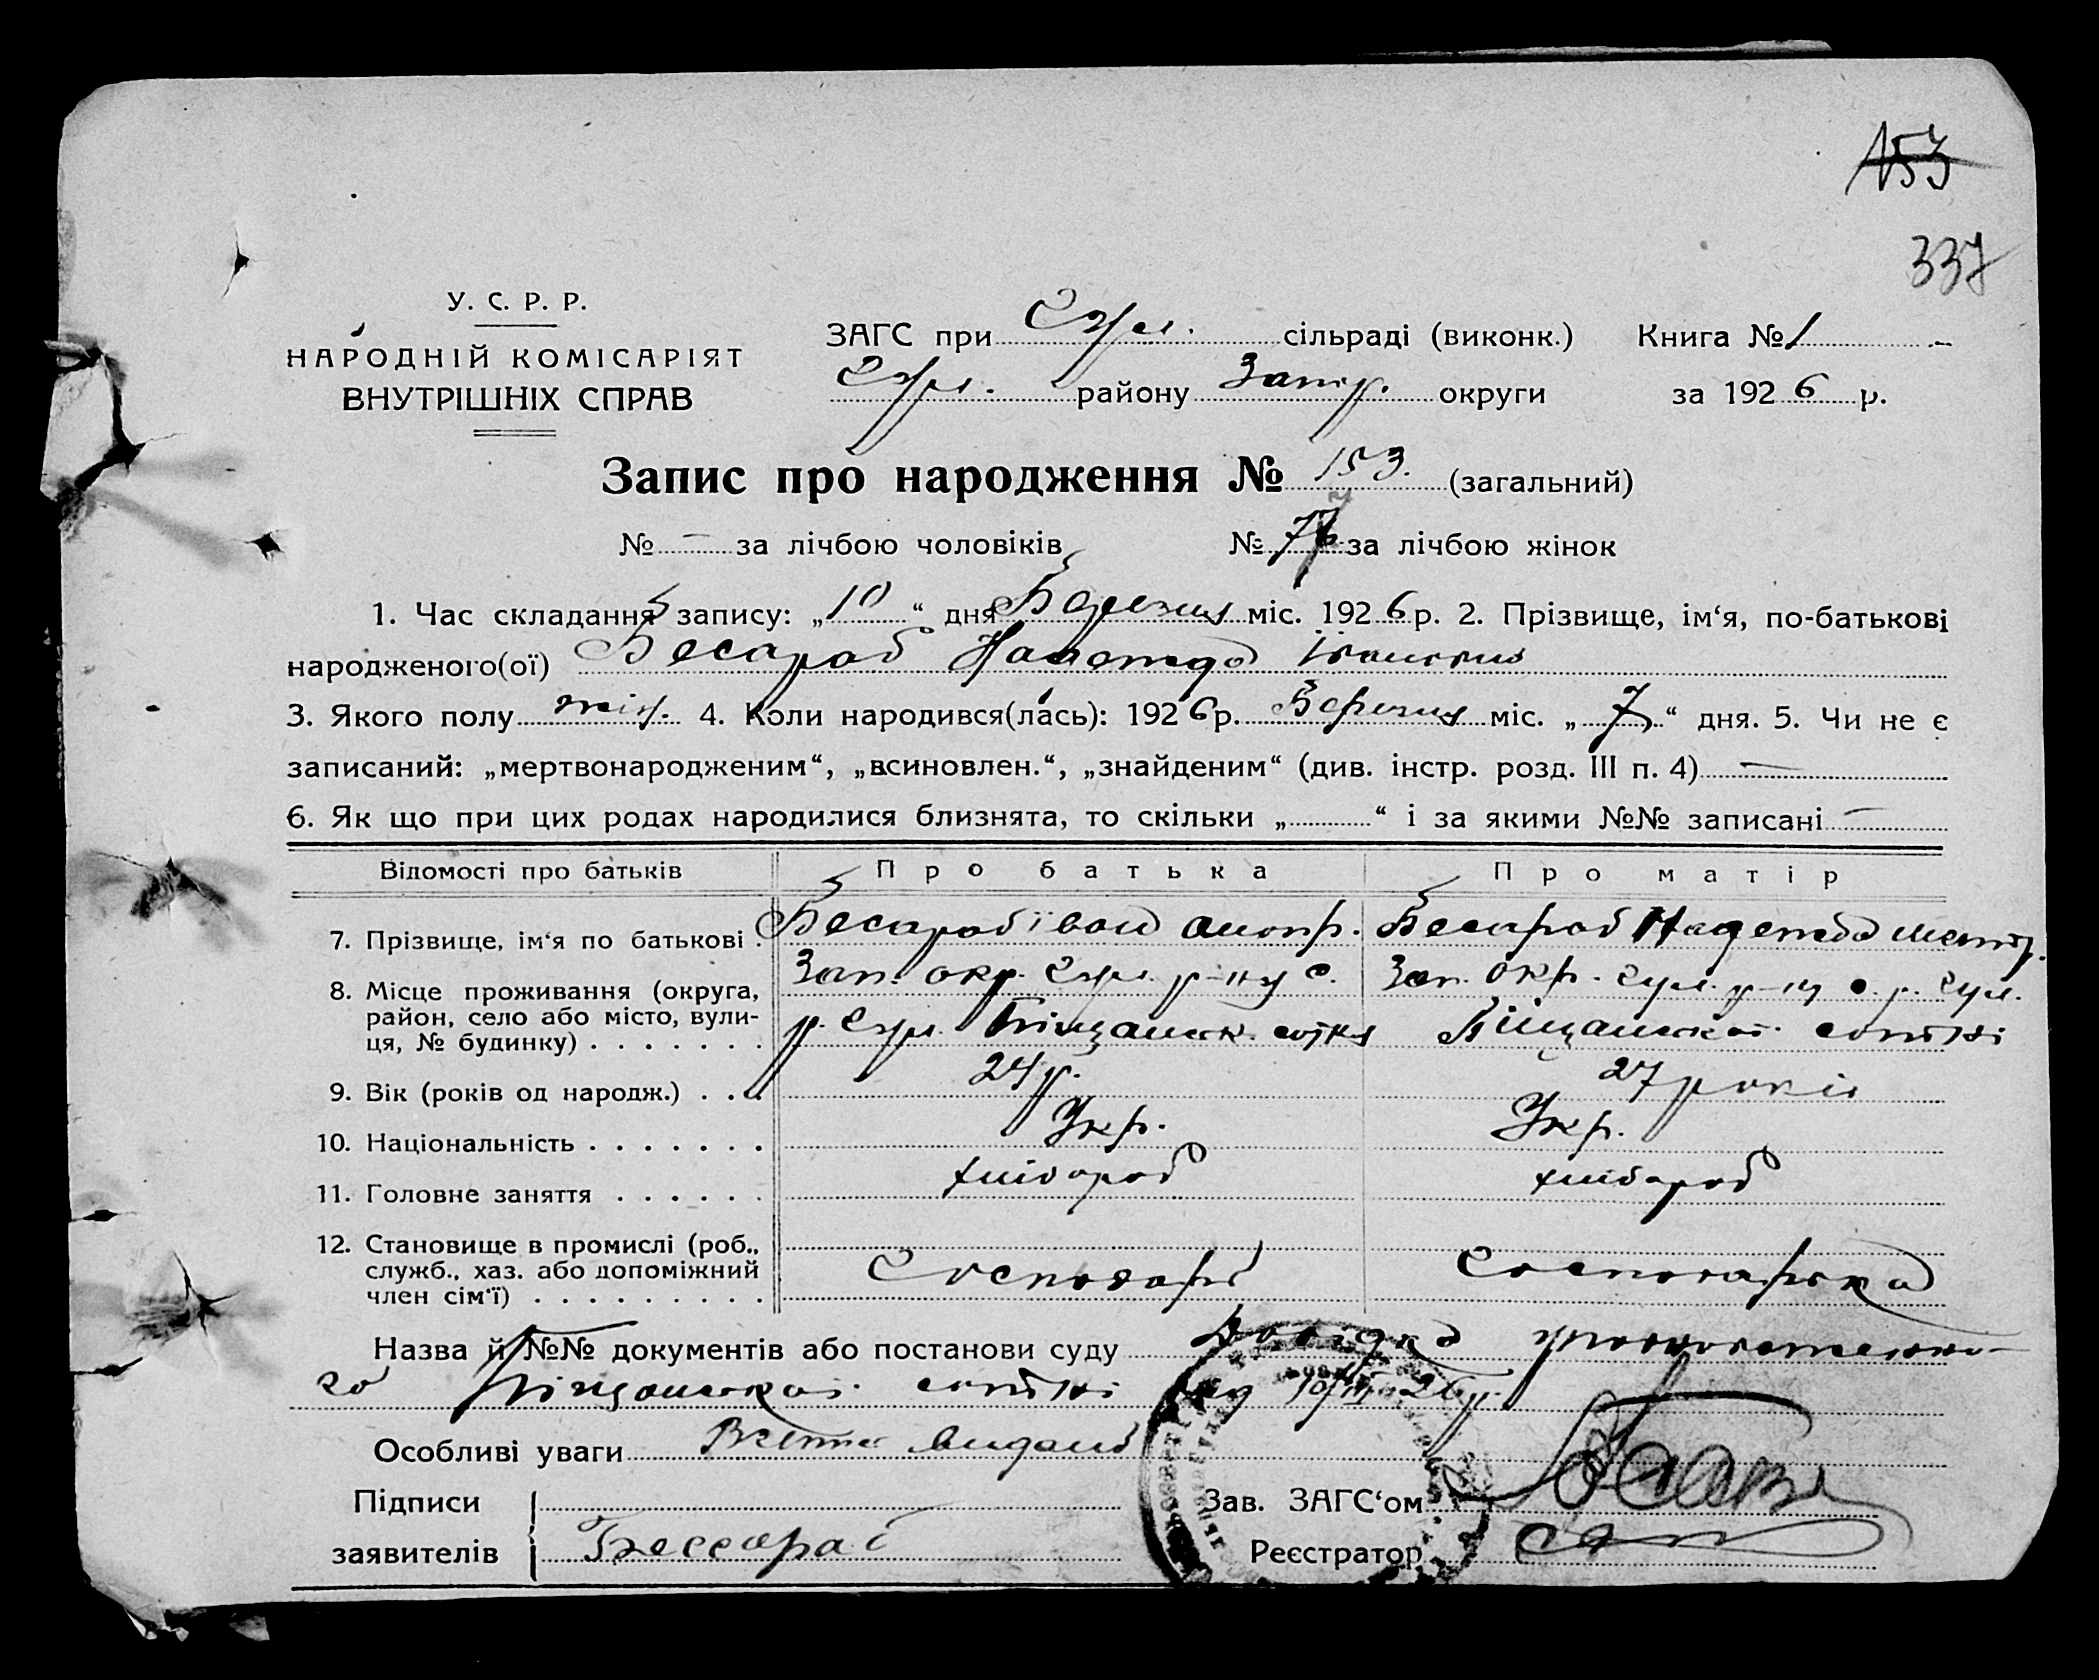 153
337
У. С. Р. Р.
НАРОДНІЙ КОМІСАРІЯТ
ВНУТРІШНІХ СПРАВ
ЗАГС при сільраді (виконк.) Книга № 1
району Запор. округи за 1926 р.
Запис про народження № 153. (загальний)
№ — за лічбою чоловіків № 77 за лічбою жінок
1. Час складання запису: „10“ дня Березня міс. 1926 р. 2. Прізвище, ім‘я, по-батькові
народженого(ої) Бесараб Іванівна
3. Якого полу жін. 4. Коли народився(лась): 1926 р. Березня міс. „7“ дня. 5. Чи не є
записаний: „мертвонародженим“, „всиновлен.“, „знайденим“ (див. інстр. розд. III п. 4) —
6. Як що при цих родах народилися близнята, то скільки „ “ і за якими №№ записані —
Відомості про батьків Про батька Про матір
7. Прізвище, ім‘я по батькові . Бесараб Іван Бесараб
8. Місце проживання (округа, Зап. окр. р-ну с. Зап. окр. р-ну
район, село або місто, вули- Піщанськ. сотня Піщанської сотні
ця, № будинку) . . . . . . .
9. Вік (років од народж.) . . . 24 р. 27 років
10. Національність . . . . . . . Укр. Укр.
11. Головне заняття . . . . . . хлібороб хлібороб
12. Становище в промислі (роб.,
служб., хаз. або допоміжний Господарь Господарька
член сім‘ї) . . . . . . . . .
Назва й №№ документів або постанови суду Довідка уповноваженно-
го Піщанської сотні від 10/III 26 р.
Особливі уваги видано
Підписи Зав. ЗАГС‘ом
заявителів Бессараб Реєстратор